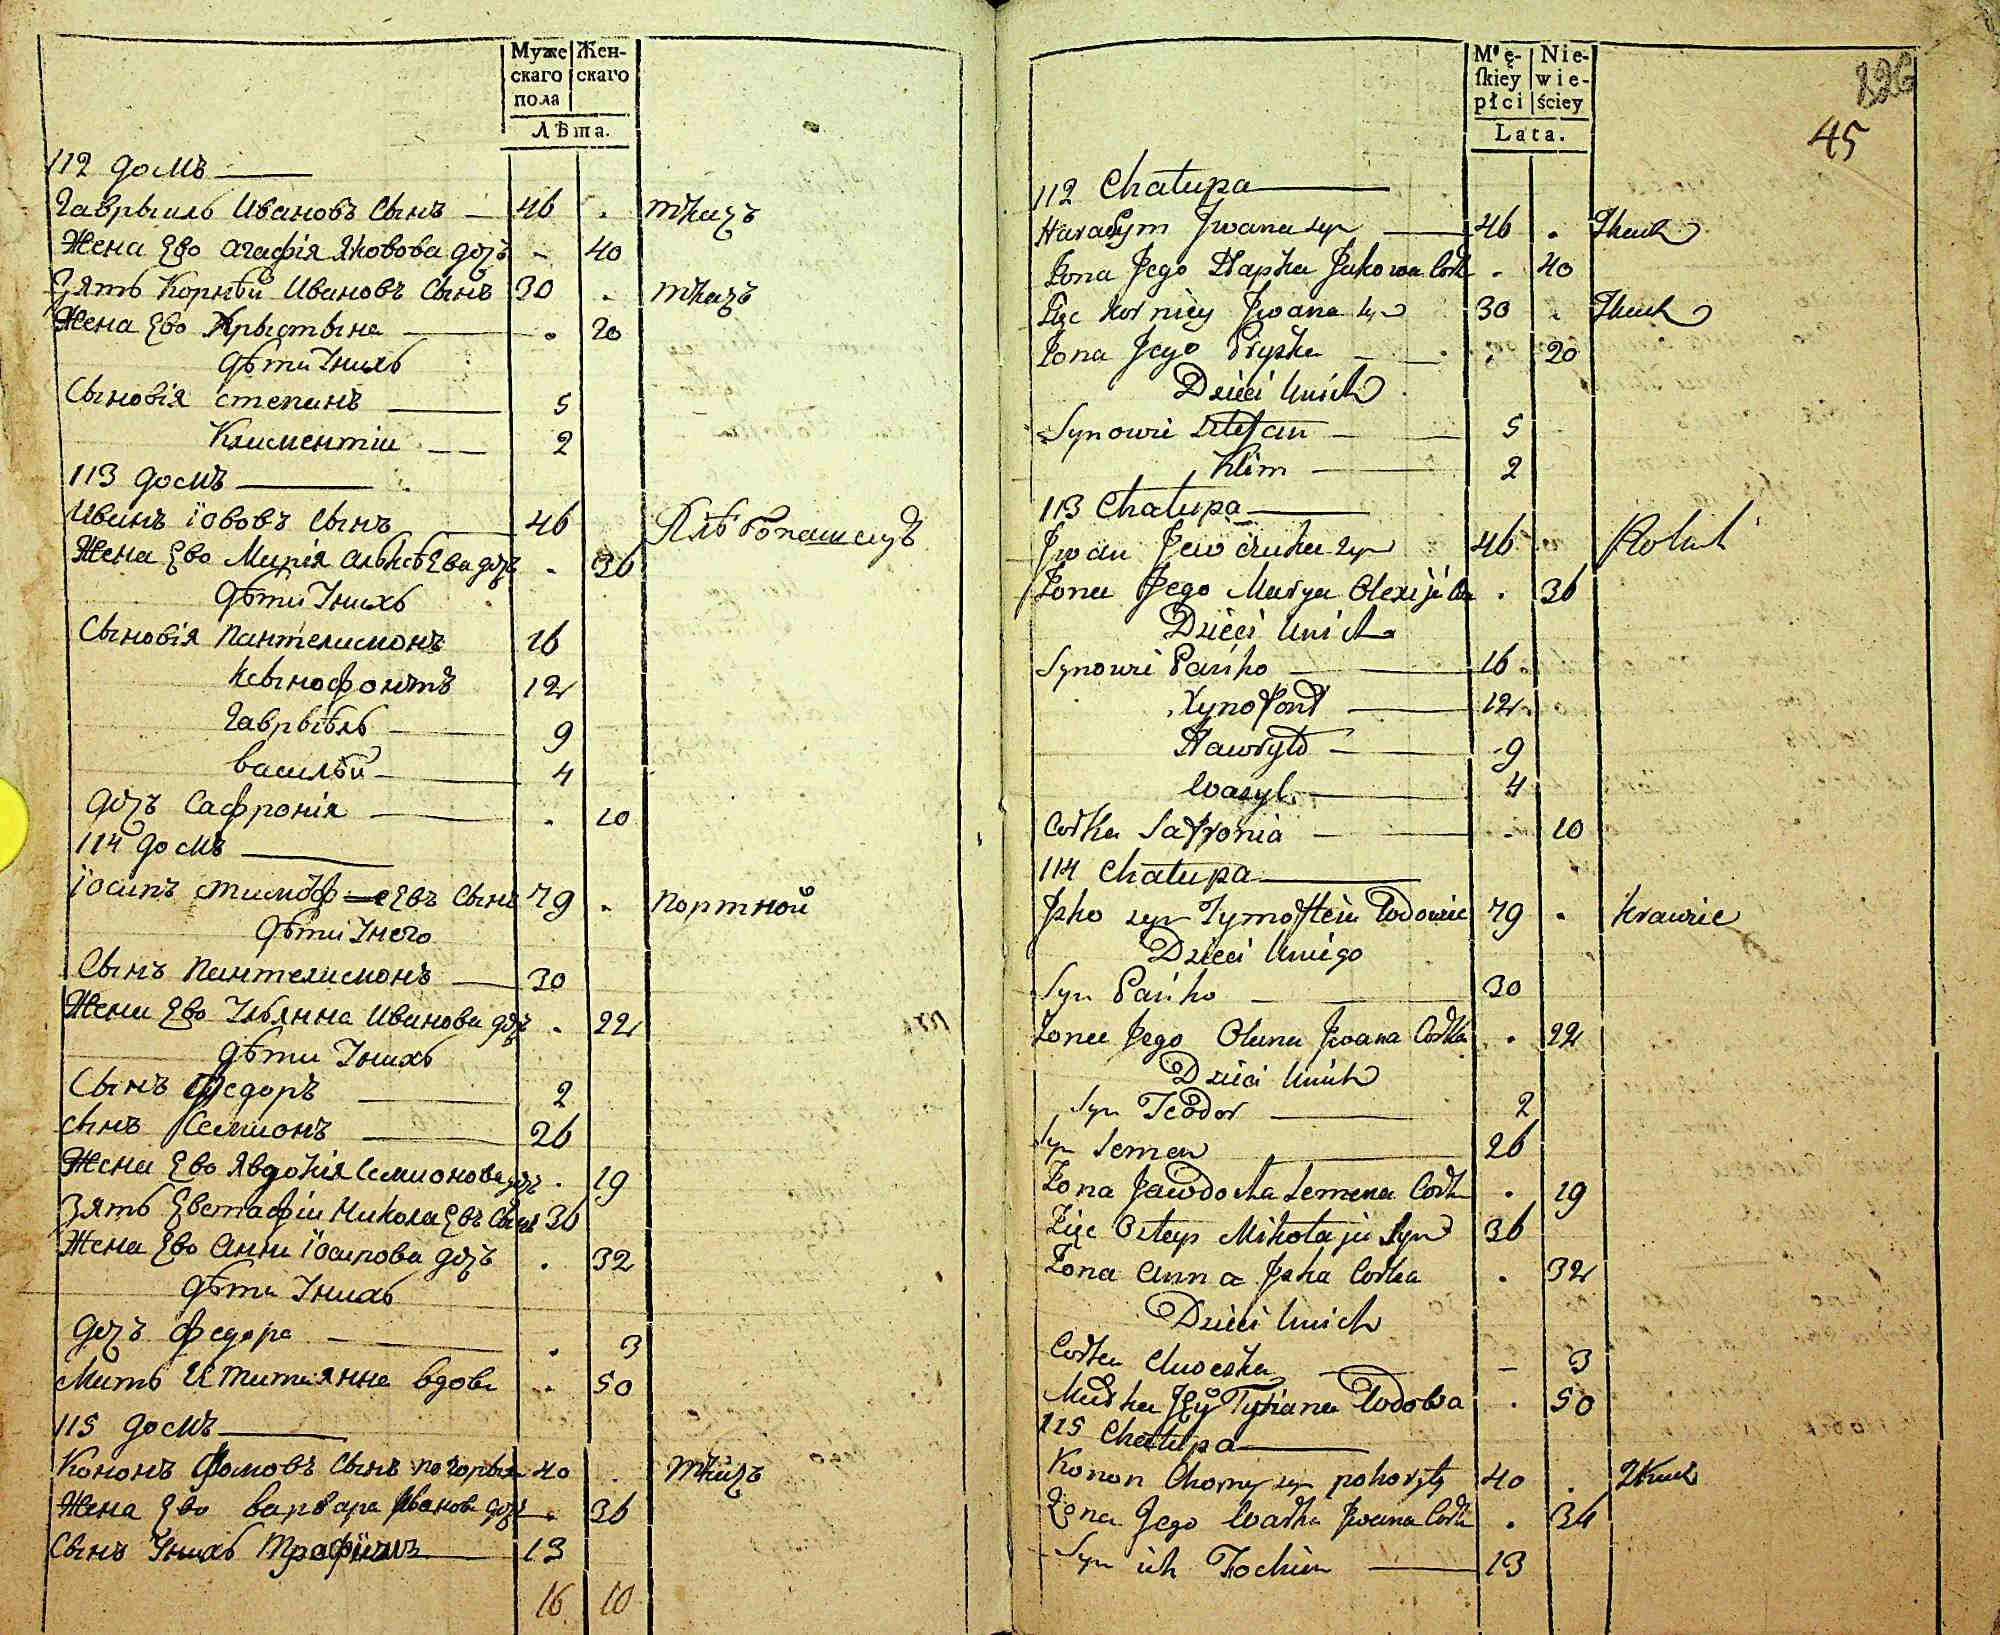 Муже Жен-
скаго скаго
пола
Лѣта.
112 домъ
Гаврыилъ Ивановъ Сынъ 46 ткачъ
Жена Ево Агафія Яковова дочъ 40
Зять Корнѣй Ивановъ Сынъ 30 ткачъ
Жена Ево Хрыстына 20
дѣти Унихъ
Сыновія степанъ 5
Климентіи 2
113 домъ
Иванъ Іововъ Сынъ 46 Хлѣбопашецъ
Жена Ево Марія Алексѣева дочъ 36
Дѣти Унихъ
Сыновія Пантелимонъ 16
Ксынофонтъ 12
Гаврыѣлъ 9
василѣй 4
дочъ Сафронія 10
114 домъ
Іосипъ тимофеевъ Сынъ 79 портной
Дѣти Унего
Сынъ Пантелимонъ 30
Жена Ево Ульянна Иванова дочъ 22
дѣти Унихъ
Сынъ Федоръ 2
сынъ Семионъ 26
Жена Ево Явдокія Семионова дочъ 19
Зять Евстафіи Николаевъ Сынъ 36
Жена Ево Анна Іосипова дочъ 32
дѣти Унихъ
дочъ Федора 3
Мать И татиянна вдова 50
115 домъ
Кононъ Фомовъ Сынъ 40 ткачъ
Жена Ево варвара Иванова дочъ 36
Сынъ Унихъ Трофимъ 13
16 10
Mę- Nie-
ſkiey wie-
płci ściey
Lata.
826
45
112 Chałupa
Harasym Jwana syn 46 Tkach
Żona Jego Hapka Jakowa Cork 40
Zięc Korniey Jwana syn 30 Tkach
Żona Jego Pryska 20
Dzieci Unich
Synowie Stefan 5
Klim 2
113 Chałupa
Jwan syn 46 Rolnik
Żona Jego Marya Olexija 36
Dzieci Unich
Synowie Pańko 16
Xynofont 12
Hawryło 9
Wasyl 4
Corka Safronia 10
114 Chałupa
Jsko syn Tymofteia Wdowiec 79 Krawiec
Dzieci Uniego
Syn Pańko 30
Żona Jego Olana Jwana Corka 22
Dzieci Unich
Syn Teodor 2
Syn Semen 26
Żona Jawdocha Semena Cork 19
Zięc Ostap Mikołaja Syn 36
Żona Anna Jska Corka 32
Dzieci Unich
Corka 3
Matka Jey Tytiana Wdowa 50
115 Chałupa
Konon Chomy syn pohoryły 40 Tkach
Żona Jego Warka Jwana Cork 34
Syn ich Trochim 13